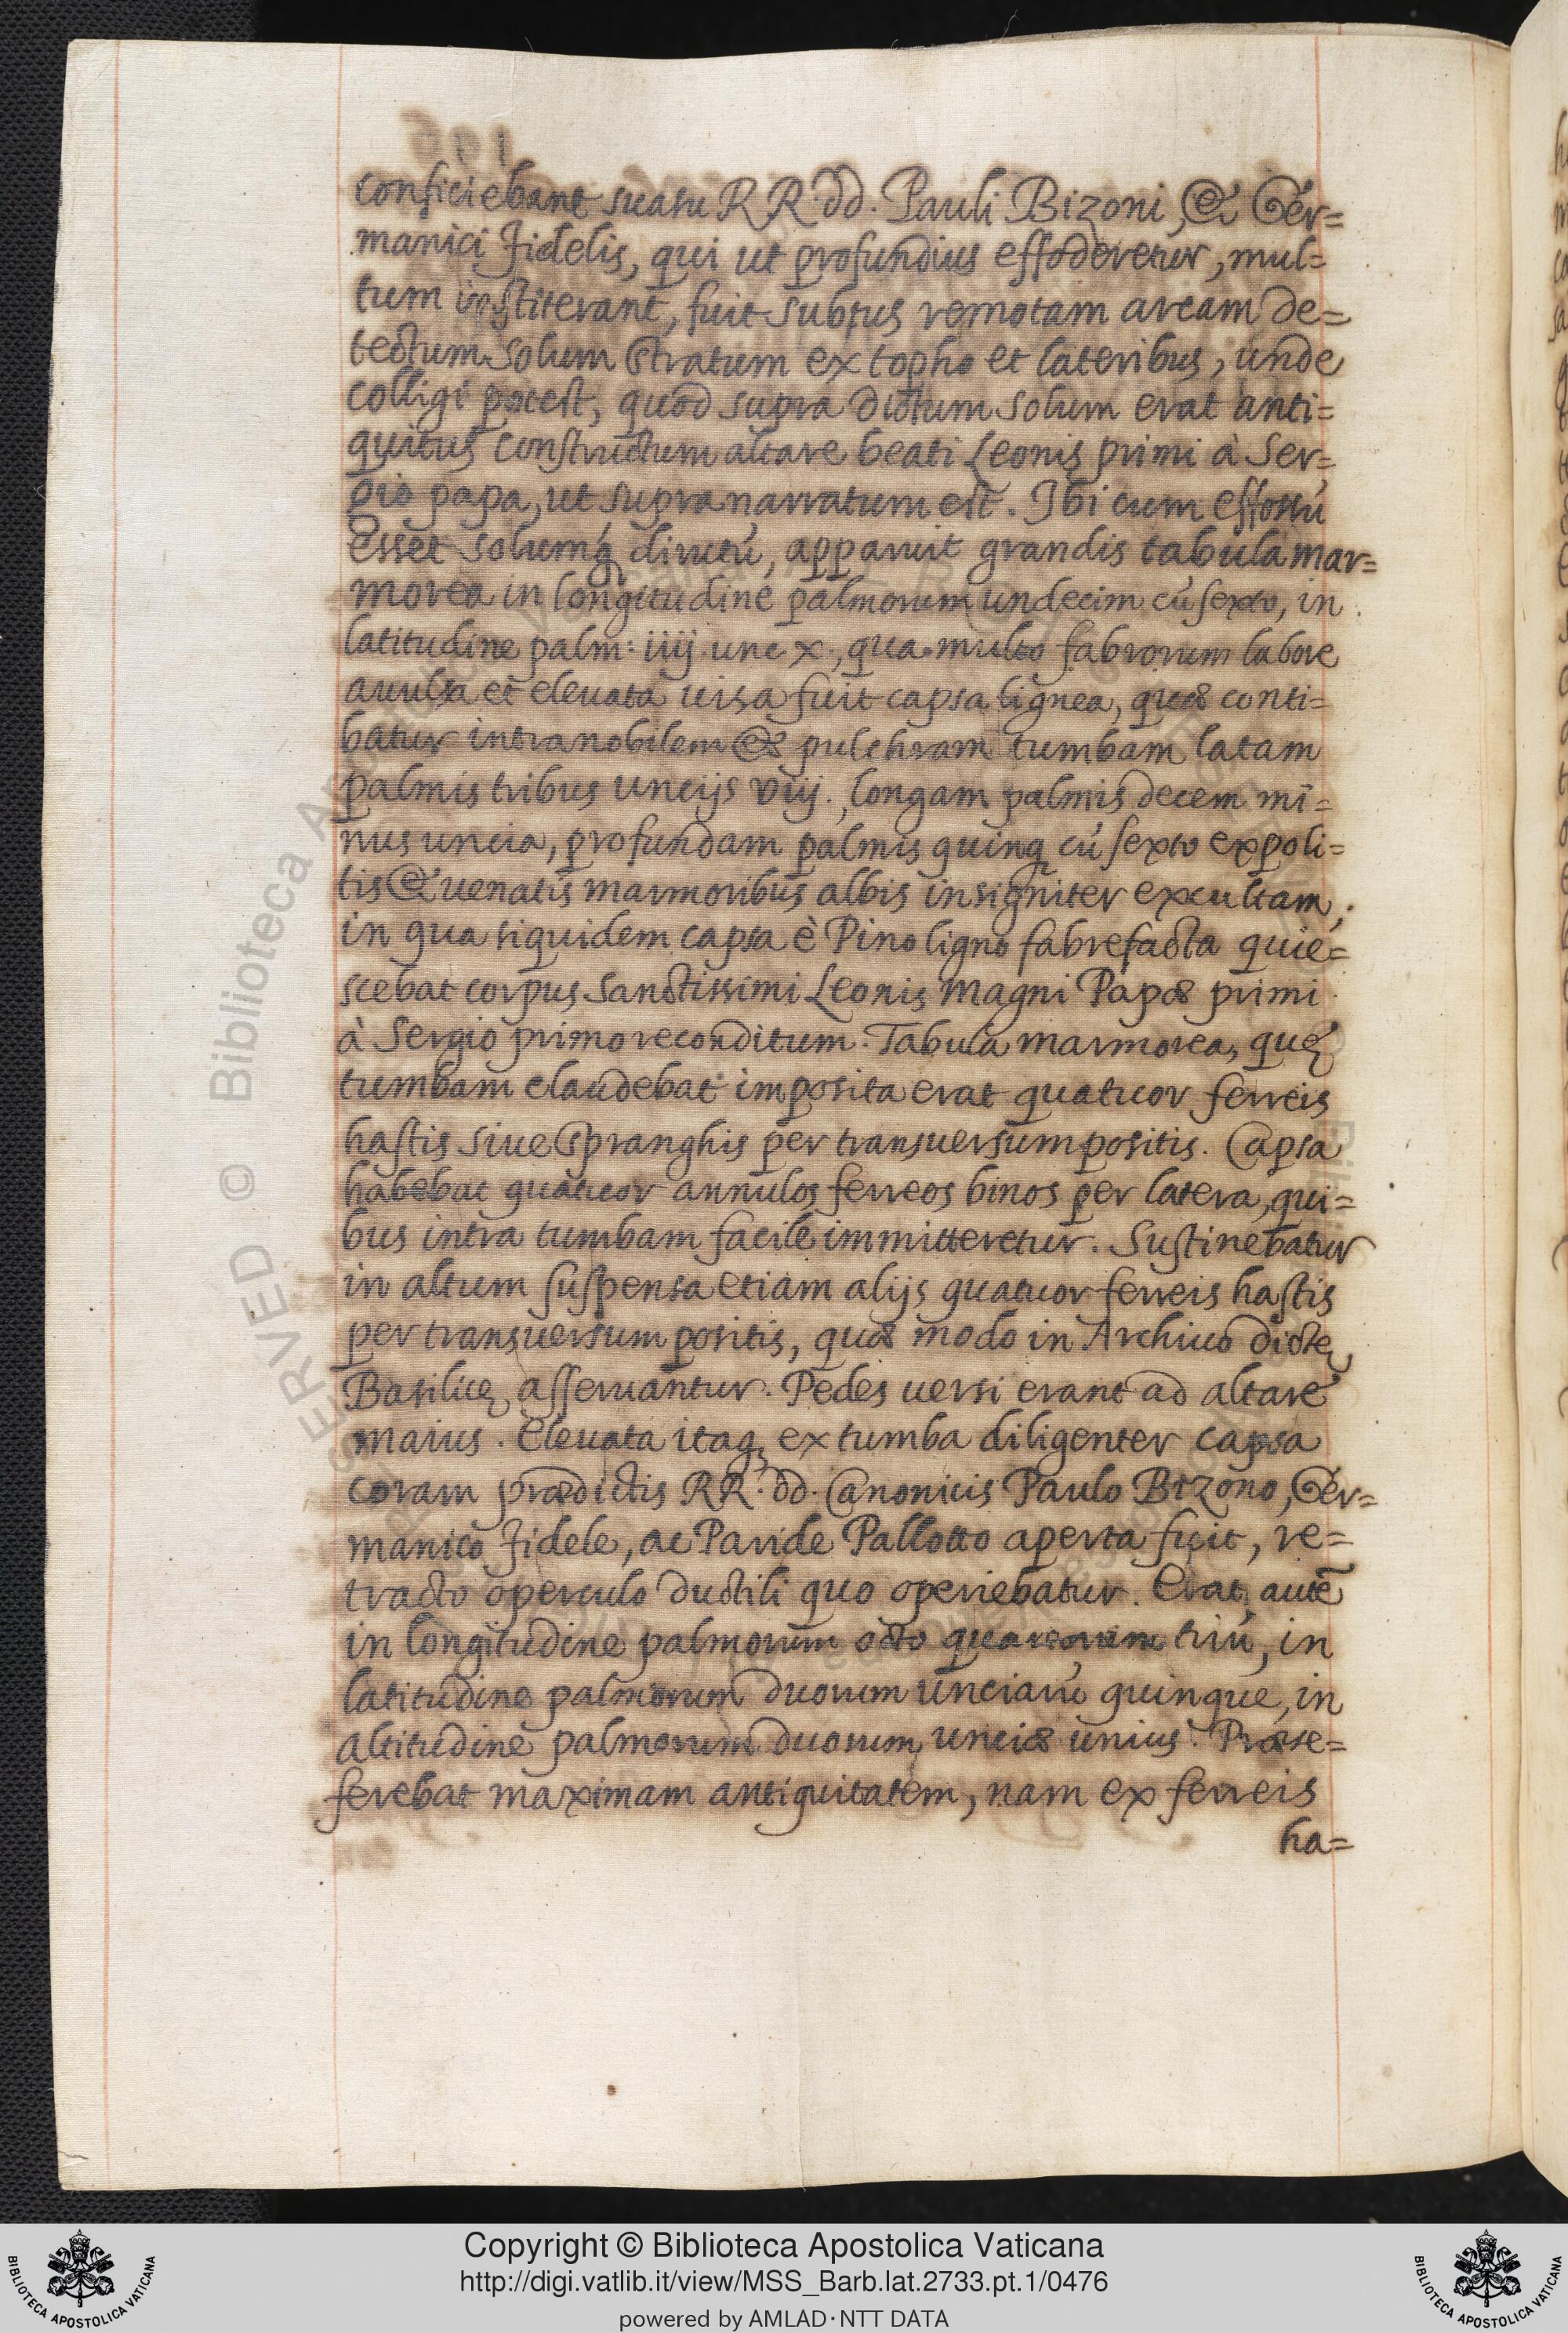 conficiebant suasu RR. dd. Pauli Bizoni, & Ger=
manici Fidelis, qui ut profundius effoderetur, mul=
tum institerant, fuit subtus remotam arcam de=
tectum solum stratum ex topho et lateribus, unde
colligi potest, quod supra dictum solum erat anti=
quitus constructum altare beati Leonis primi à Ser=
gio papa, ut supra narratum est. Ibi cum effossũ
esset solumq; dirutũ, apparuit grandis tabula mar=
morea in longitudine palmorum undecim cũ sexto, in
latitudine palm: iiij. unc x., qua multo fabrorum labore
auulsa et eleuata uisa fuit capsa lignea, quæ conti=
batur intra nobilem & pulchram tumbam latam
palmis tribus uncijs viij., longam palmis decem mi=
nus uncia, profundam palmis quinq; cũ sexto expoli=
tis & uenatis marmoribus albis insigniter excultam;
in qua siquidem capsa è Pino ligno fabrefacta quie=
scebat corpus Sanctissimi Leonis Magni Papæ primi
à Sergio primo reconditum. Tabula marmorea, quę
tumbam claudebat imposita erat quatuor ferreis
hastis siue Spranghis per transuersum positis. Capsa
habebat quatuor annulos ferreos binos per latera, qui=
bus intra tumbam facile immitteretur. Sustinebatur
in altum suspensa etiam alijs quatuor ferreis hastis
per transuersum positis, quæ modo in Archiuo dictę
Basilicę asseruantur. Pedes uersi erant ad altare
maius. Eleuata itaq; ex tumba diligenter capsa
coram prædictis RR. dd. Canonicis Paulo Bizono, Ger=
manico Fidele, ac Paride Pallotto aperta fuit, re=
tracto operculo ductili quo operiebatur. Erat autẽ
in longitudine palmorum octo quartorum triũ, in
latitudine palmorum duorum unciarũ quinque, in
altitudine palmorum duorum unciæ unius. Præse=
ferebat maximam antiquitatem, nam ex ferreis
ha=
Copyright © Biblioteca Apostolica Vaticana
http://digi.vatlib.it/view/MSS_Barb.lat.2733.pt.1/0476
powered by AMLAD·NTT DATA
BIBLIOTECA APOSTOLICA VATICANA
BIBLIOTECA APOSTOLICA VATICANA